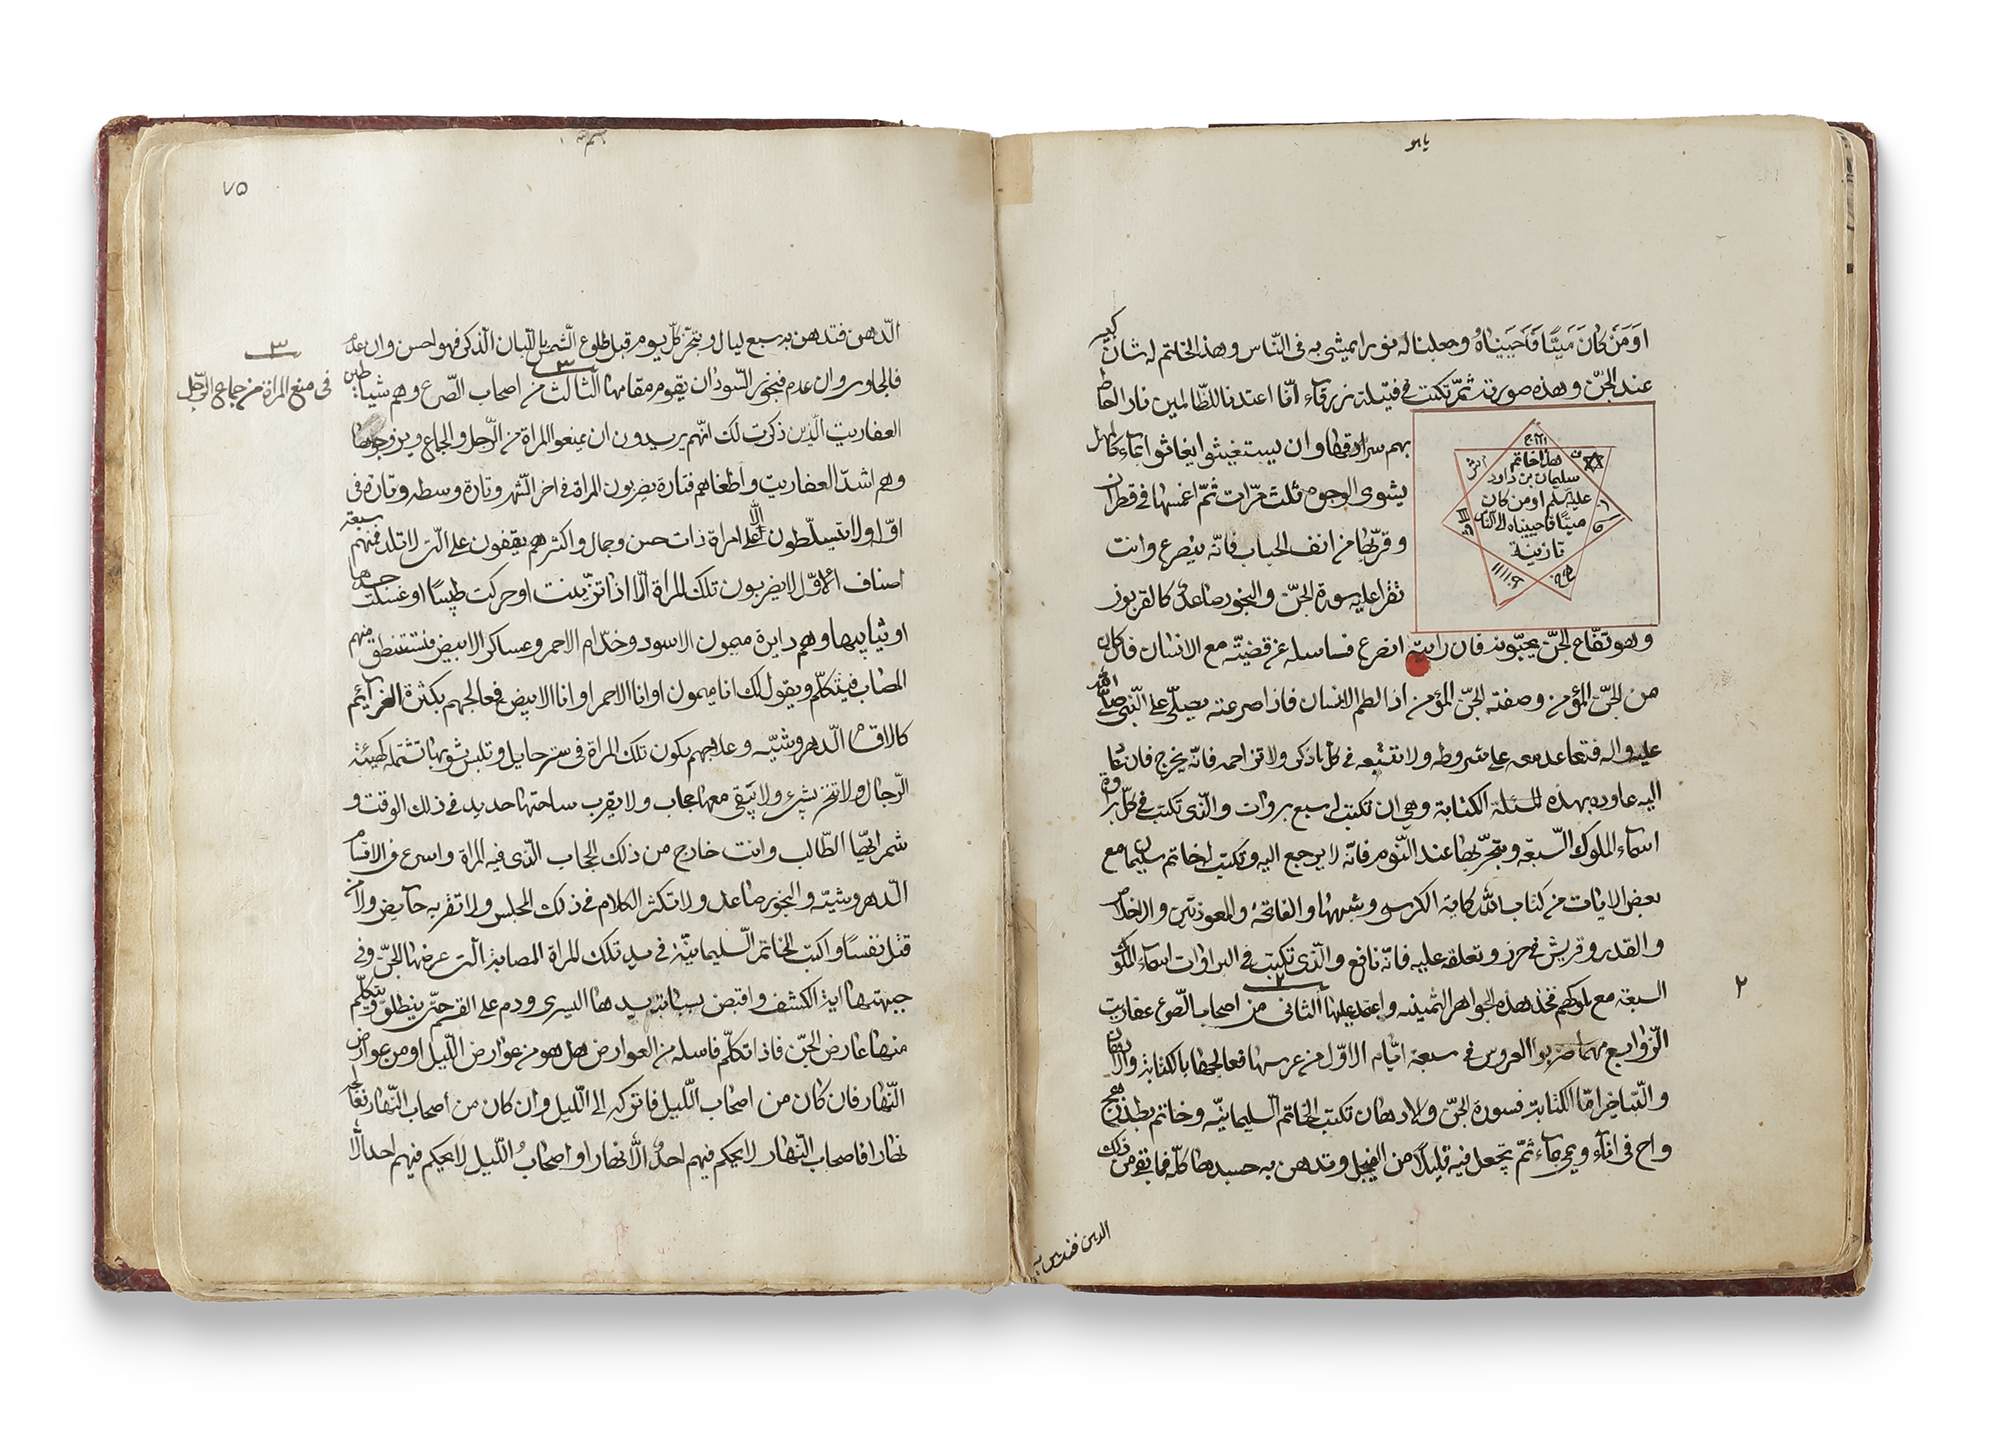 يا هو
اومن كان ميتًا فاحييناه وجعلنا له نورا يمشى به فى الناس وهذ الخاتم له شان كبير
عند الجن وهذه صورته ثم تكتب فى فتيلة زرقاء انّا اعتدنا للظالمين نارا احاط
بهم سرادقها وان يستغيثوا يغاثوا بماء كالمهل
يشوى الوجوه ثلث مرّات ثمّ اغمسها فى قطران
وقربها من انف المصاب فانّه ينصرع وانت
تقرا عليه سورة الجنّ والبخور صاعد
هذا خاتم
سليمان بن داود
عليه سلم اومن كان
ميتًا فاحييناه الى الناس
وهو تفّاح الجنّ يحبّونه فان رايته انصرع فساسله عن قضيّته مع الانسان فان كان
من الجنّ المؤمن وصفته الجنّ المؤمن اذا لطم الانسان فاذا صرعته يصلّى على النّبى صلى الله
عليه واله فتعاهد معه على شروطه ولا تتبعه فى كل ما ذكر ولا تزاحمه فانّه يخرج فان عاد
اليه عاوده بهذه المسئلة الكتابة وهى ان تكتب له سبع بروات والذى تكتب فى كلّ براوة
اسماء الملوك السّبعة ويتبخّر بها عند النّوم فانّه لا يرجع اليه وتكتب له خاتم سليمان مع
بعض الايات من كتاب الله كاية الكرسى وشبهها والفاتحة والمعوذتين والاخلاص
والقدر وقريش فى حرز وتعلقه عليه فانّه نافع والّذى تكتب فى البراوات اسماء الملوك
السبعة مع ملوكهم فخذ هذه الجواهر الثمينه واعتمد عليها الثانى من اصحاب الصّرع عفاريت
٢
الزّوابع مهما ضربوا العروس فى سبعة ايّام الاوّل من عرسها فعالجها بالكتابة والادهان
والتباخير امّا الكتابة فسورة الجنّ والادهان تكتب الخاتم السليمانيّة وخاتم بطد زهج
واح فى اناء ويمحى بماء ثمّ تجعل فيه قليلًا من الفيجل وتدهن به جسدها كلّه فما بقى من ذلك
الدهن فتدهن به
٧٥
الدّهن فتدهن به سبع ليال ويتبخّر كلّ يوم قبل طلوع الشّمس باللّبان الذّكر فهو احسن وان عدم
فالجاوى وان عدم فبخور السّودان يقوم مقامها الثّالث من اصحاب الصّرع وهم شياطين
٣
فى منع المراة من جماع الرّجل
العفاريت الّذين ذكرت لك انّهم يريدون ان يمنعوا المراة من الرّجل والجماع ويزوجوها
وهم اشدّ العفاريت واطغاهم فتارة يضربون المراة فى اخر الشّهر وتارة وسطه وتارة فى
اوّله ولا يتسلّطون الّا على امراة ذات حسن وجمال واكثرهم يقفون على الّتى لا تلد فمنهم سبعة
اصناف الاوّل لا يضربون تلك المراة الّا اذا تزيّنت او حركت طيبًا او غسلت جسدها
او ثيابها وهم دايرة ميمون الاسود وخدّام الاحمر وعساكر الابيض فتستنطق منهم
المصاب فيتكلّم ويقول لك انا ميمون او انا الاحمر او انا الابيض فعالجهم بكثرة العزائم
كالاقسام الدّهروشيّه وعلاجهم يكون تلك المراة فى ستر حايل وتلبس ثوبها تشتمله كهيئة
الرّجال ولا تتبخّر بشىء ولا يبقى معها حجاب ولا يقرب ساحتها حديد فى ذلك الوقت و
شمر ايّها الطّالب وانت خارج من ذلك الحجاب الّذى فيه المراة واسرع فى الاقسام
الدّهروشيّه والبخور صاعد ولا تكثر الكلام فى ذلك المجلس ولا تقربه حايض ولا من
قتل نفسًا واكتب الخاتم السّليمانيّة فى يد تلك المراة المصابة الّتى عرضها الجنّ وفى
جبهتها اية الكشف واقبض بسبابة يدها اليسرى ودم على القسم حتّى ينطلق ويتكلّم
منها عارض الجنّ فاذا تكلّم فاسله من العوارض هل هو من عوارض اللّيل او من عوارض
النّهار فان كان من اصحاب اللّيل فاتركه الى اللّيل وان كان من اصحاب النّهار تعالجه
نهارا فاصحاب النّهار لا يحكم فيهم احدٌ الّا نهارا واصحابُ اللّيل لا يحكم فيهم احد الّا